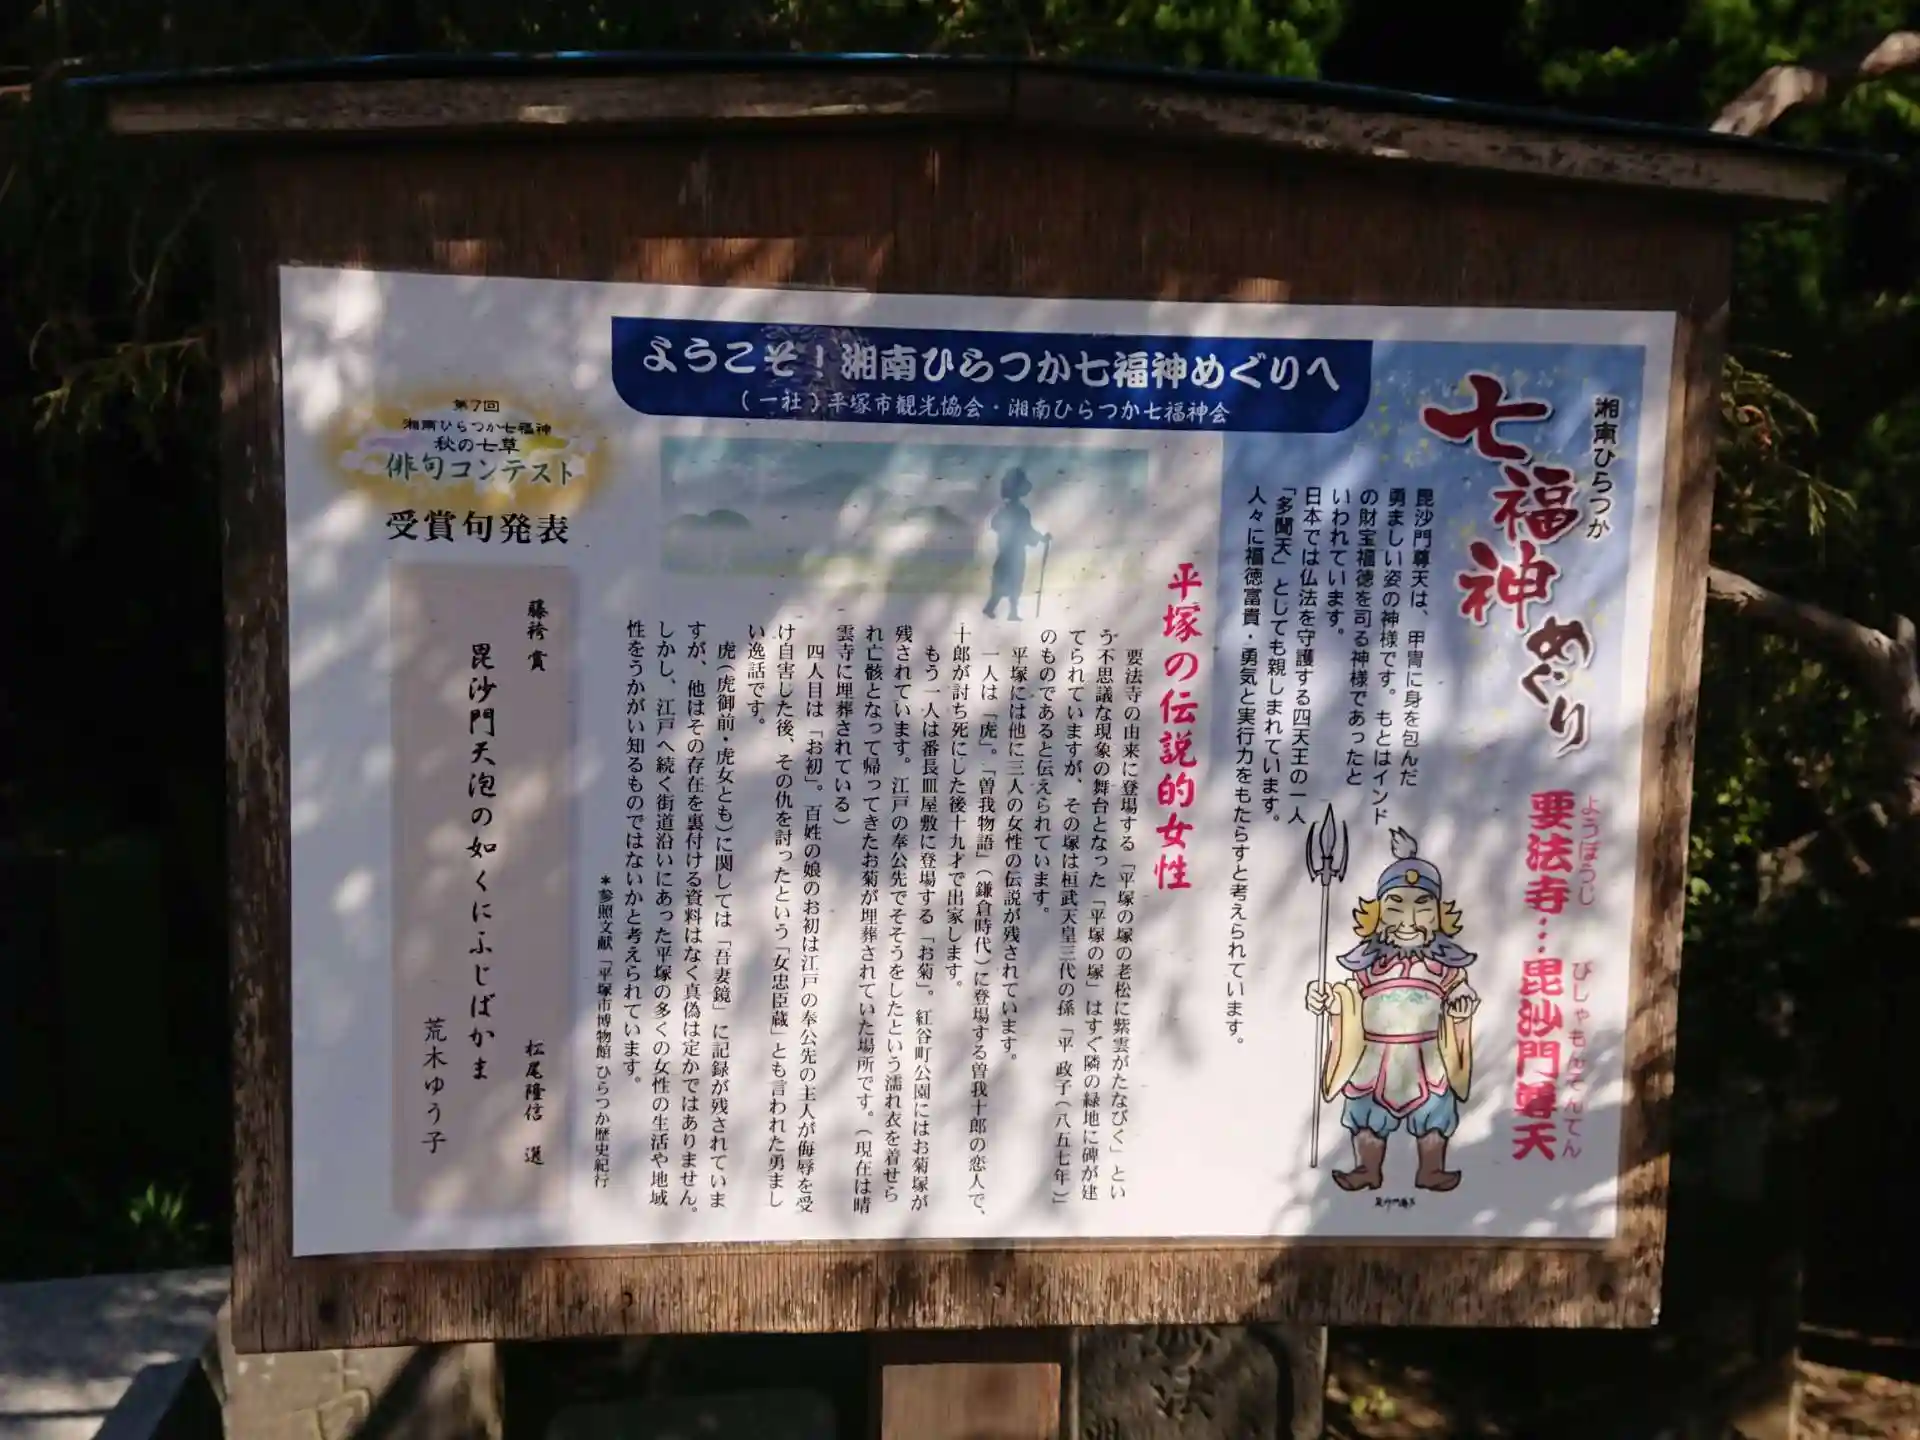 ようこそ!湘南ひらつか七福神めぐりへ
(一社)平塚市観光協会・湘南ひらつか七福神会
湘南ひらつか
七福神めぐり
ようぼうじ
びしゃもんそんてん
要法寺…毘沙門尊天
毘沙門尊天は、甲冑に身を包んだ
勇ましい姿の神様です。もとはインド
の財宝福徳を司る神様であったと
いわれています。
日本では仏法を守護する四天王の一人
「多聞天」としても親しまれています。
人々に福徳富貴・勇気と実行力をもたらすと考えられています。
毘沙門尊天
平塚の伝説的女性
要法寺の由来に登場する「平塚の塚の老松に紫雲がたなびく」とい
う不思議な現象の舞台となった「平塚の塚」はすぐ隣の緑地に碑が建
てられていますが、その塚は桓武天皇三代の孫「平 政子(八五七年)」
のものであると伝えられています。
平塚には他に三人の女性の伝説が残されています。
一人は「虎」。「曽我物語」(鎌倉時代)に登場する曽我十郎の恋人で、
十郎が討ち死にした後十九才で出家します。
もう一人は番長皿屋敷に登場する「お菊」。紅谷町公園にはお菊塚が
残されています。江戸の奉公先でそそうをしたという濡れ衣を着せら
れ亡骸となって帰ってきたお菊が埋葬されていた場所です。(現在は晴
雲寺に埋葬されている)
四人目は「お初」。百姓の娘のお初は江戸の奉公先の主人が侮辱を受
け自害した後、その仇を討ったという「女忠臣蔵」とも言われた勇まし
い逸話です。
虎(虎御前・虎女とも)に関しては「吾妻鏡」に記録が残されていま
すが、他はその存在を裏付ける資料はなく真偽は定かではありません。
しかし、江戸へ続く街道沿いにあった平塚の多くの女性の生活や地域
性をうかがい知るものではないかと考えられています。
*参照文献「平塚市博物館 ひらつか歴史紀行
第7回
湘南ひらつか七福神
秋の七草
俳句コンテスト
受賞句発表
藤袴賞
松尾隆信 選
毘沙門天泡の如くにふじばかま
荒木ゆう子
法